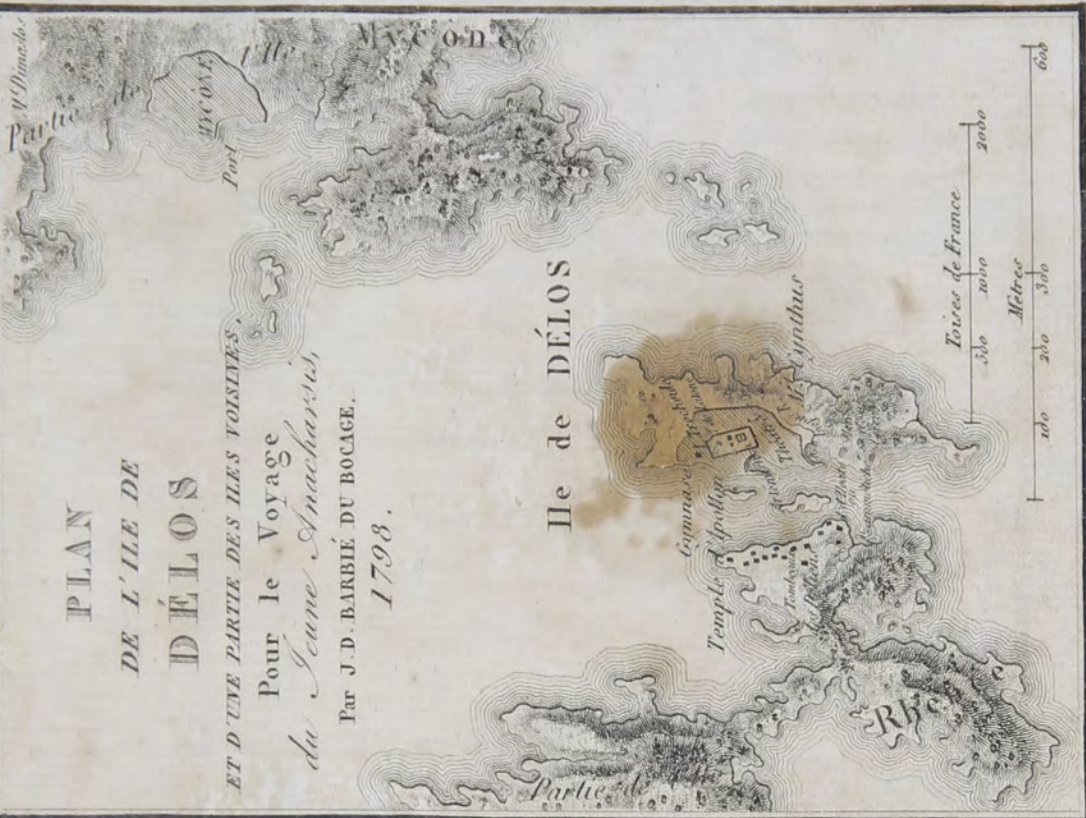 PLAN
DE L'ILE DE
DÉLOS
ET D'UNE PARTIE DES ILES VOISINES
Pour le Voyage
du Jeune Anacharsis,
Par J. D. BARBIÉ DU BOCAGE.
1798.
Partie de l'Ile Mycone
MYCONE
Port
Ile de DÉLOS
Gymnase
Temple d'Apollon
Cynthus
Tombeaux
Rhe
Partie de
Toises de France
500 1000 2000
Mètres
100 200 300 600